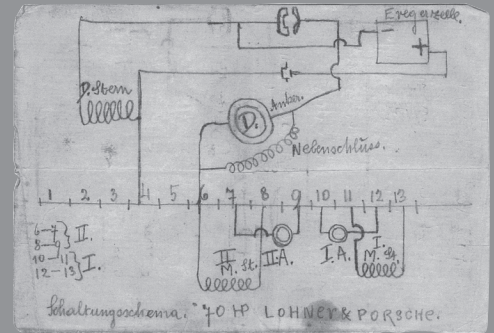 Eregerzelle.
- +
D. Stern
Anker.
D.
Nebenschluss.
1 2 3 4 5 6 7 8 9 10 11 12 13
6-7 } II.
8-9
10-11 } I.
12-13
II M. St. II.A. I.A. I. M. St.
Schaltungsschema. 70 HP LOHNER & PORSCHE.